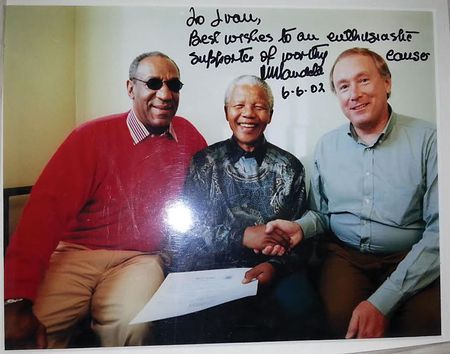 To Ivan,
Best wishes to an enthusiastic
supporter of worthy causes
NMandela
6-6-02